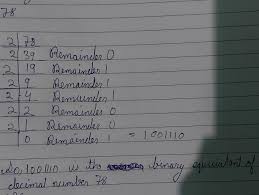 78
2 78
2 39 Remainder 0
2 19 Remainder 1
2 9 Remainder 1
2 4 Remainder 1
2 2 Remainder 0
2 1 Remainder 0
0 Remainder 1 = 1001110
1001110 is the binary equivalent of
decimal number 78